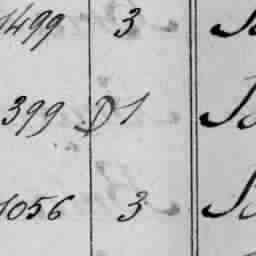 1499 3
399 D 1
1056 3